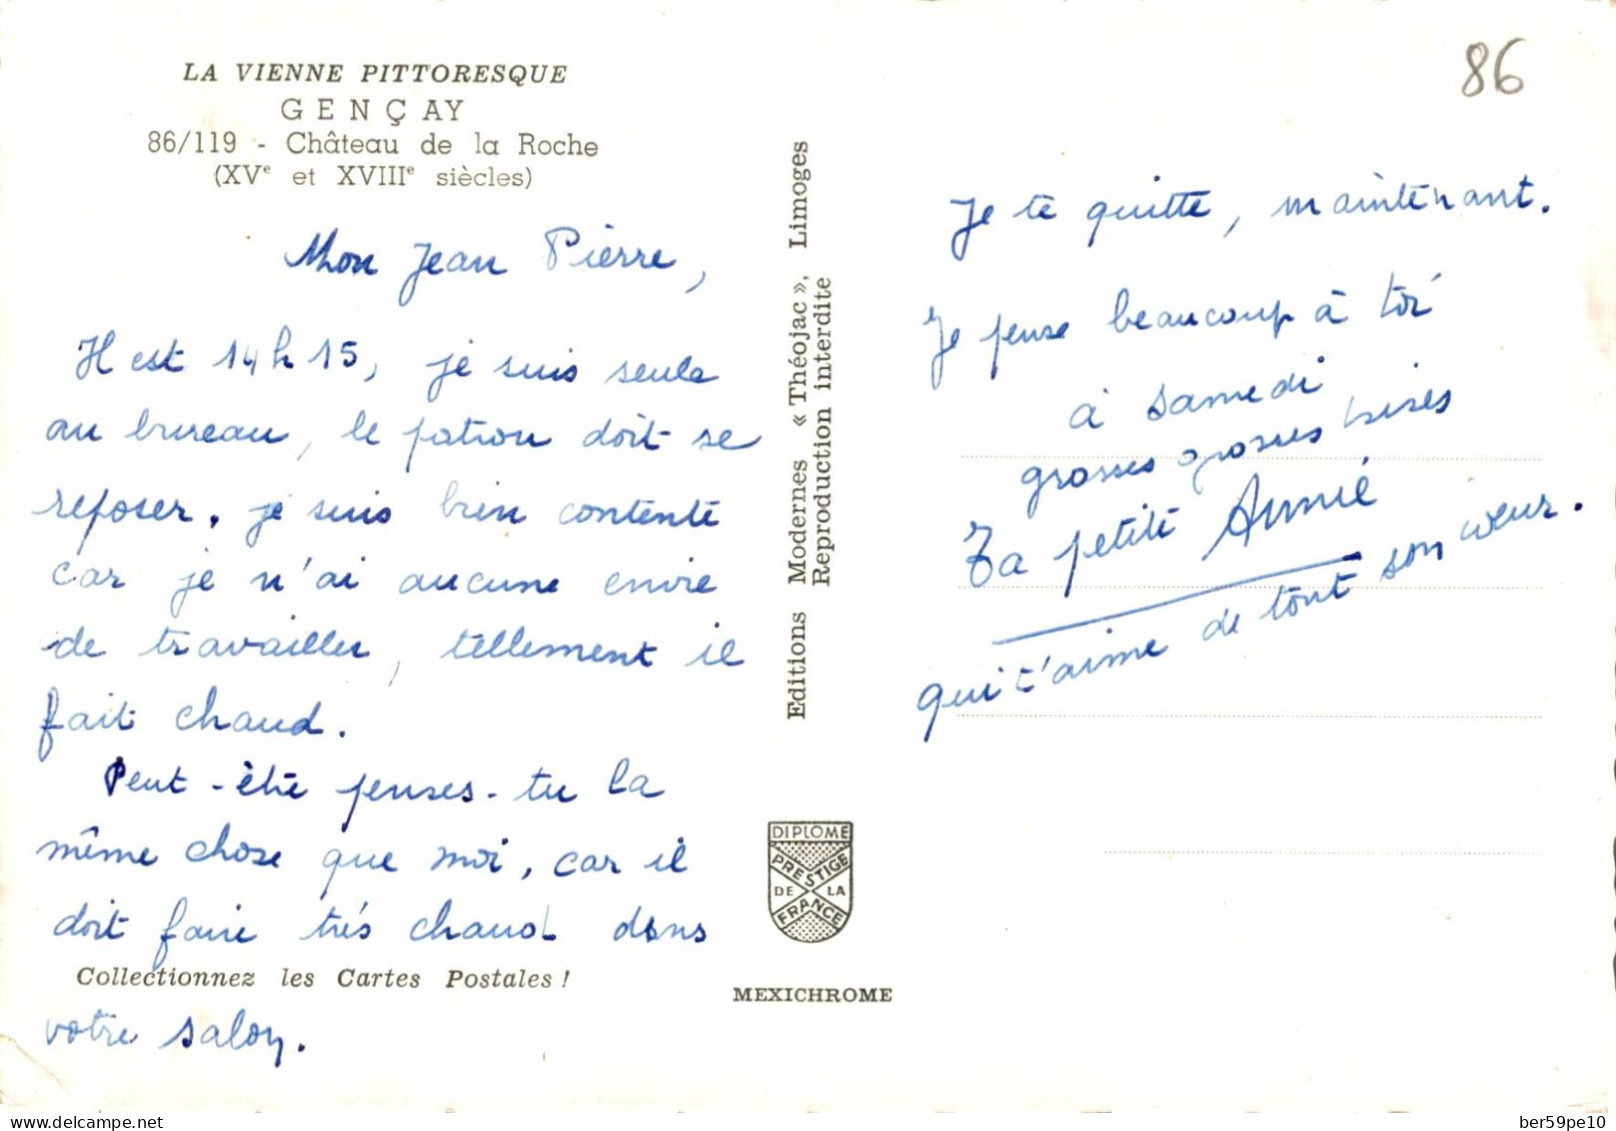 LA VIENNE PITTORESQUE
GENÇAY
86/119 - Château de la Roche
(XVe et XVIIIe siècles)
Mon Jean Pierre,
Il est 14h15, je suis seule
au bureau, le patron doit se
reposer. je suis bien contente
car je n'ai aucune envie
de travailler, tellement il
fait chaud.
Peut-être penses-tu la
même chose que moi, car il
doit faire très chaud dans
Collectionnez les Cartes Postales !
votre salon.
Editions Modernes « Théojac », Limoges
Reproduction interdite
DIPLOME
PRESTIGE
DE LA
FRANCE
MEXICHROME
86
Je te quitte, maintenant.
Je pense beaucoup à toi
à samedi
grosses grosses bises
Ta petite Annie
qui t'aime de tout son cœur.
ber59pe10